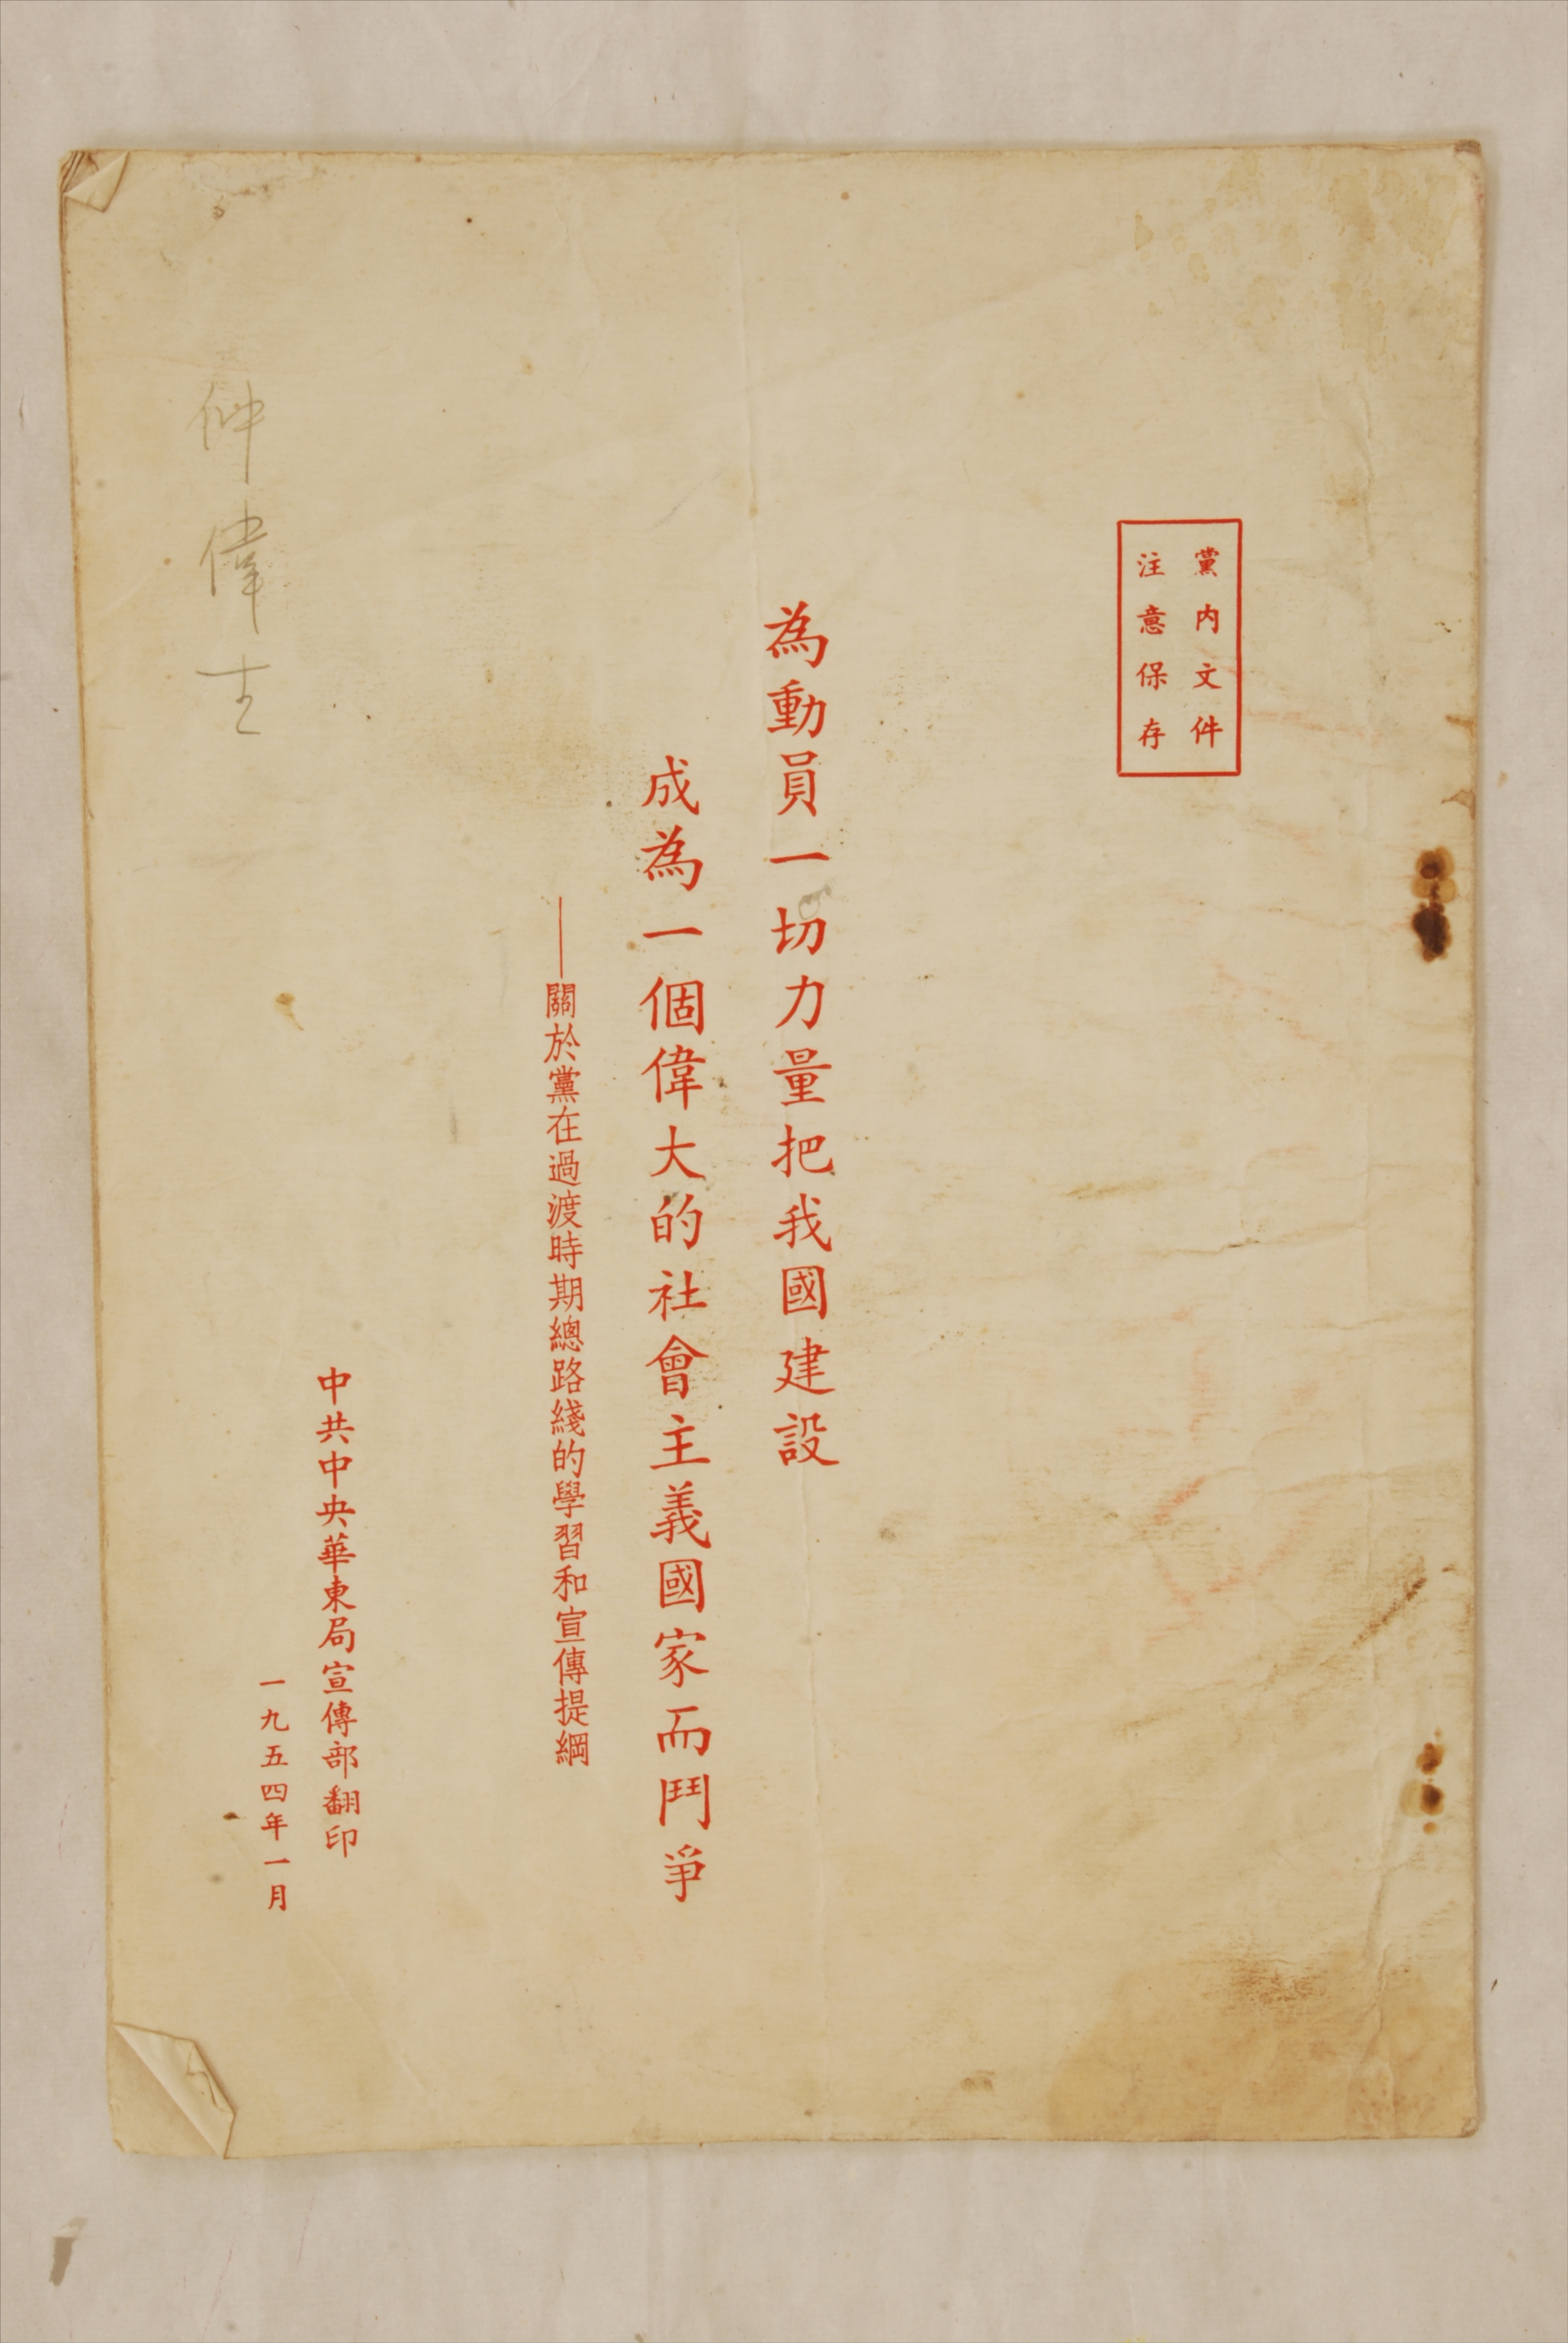 黨內文件
注意保存
為動員一切力量把我國建設
成為一個偉大的社會主義國家而鬥爭
——關於黨在過渡時期總路綫的學習和宣傳提綱
中共中央華東局宣傳部翻印
一九五四年一月
仲偉